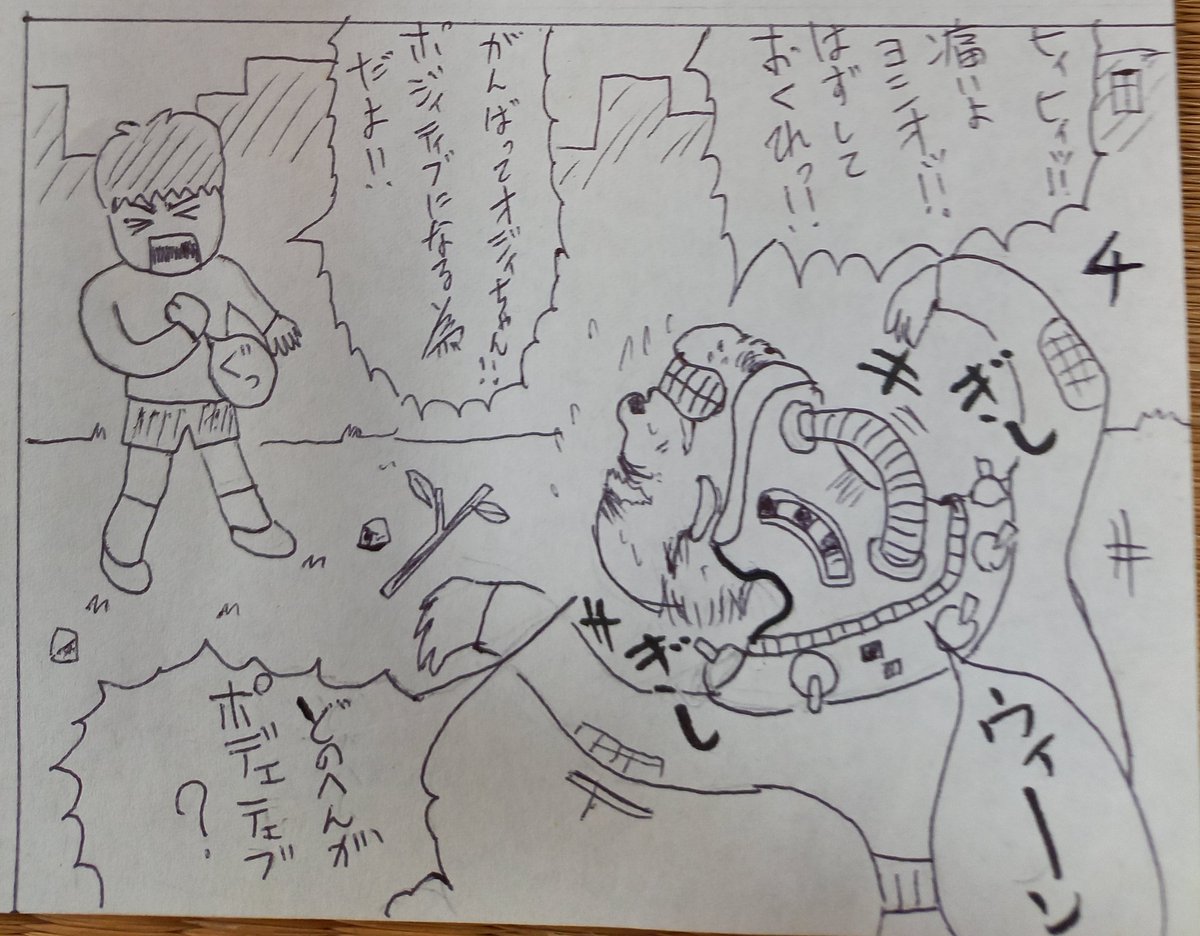 4
ヒィヒィッ!!
痛いよ
ヨシオッ!!
はずして
おくれっ!!
がんばってオジィちゃん!!
ポジィティブになる
だよ!!
ぐっ
ギギ
ギギ
ウィーン
どのへんが
ポデェテェブ
?